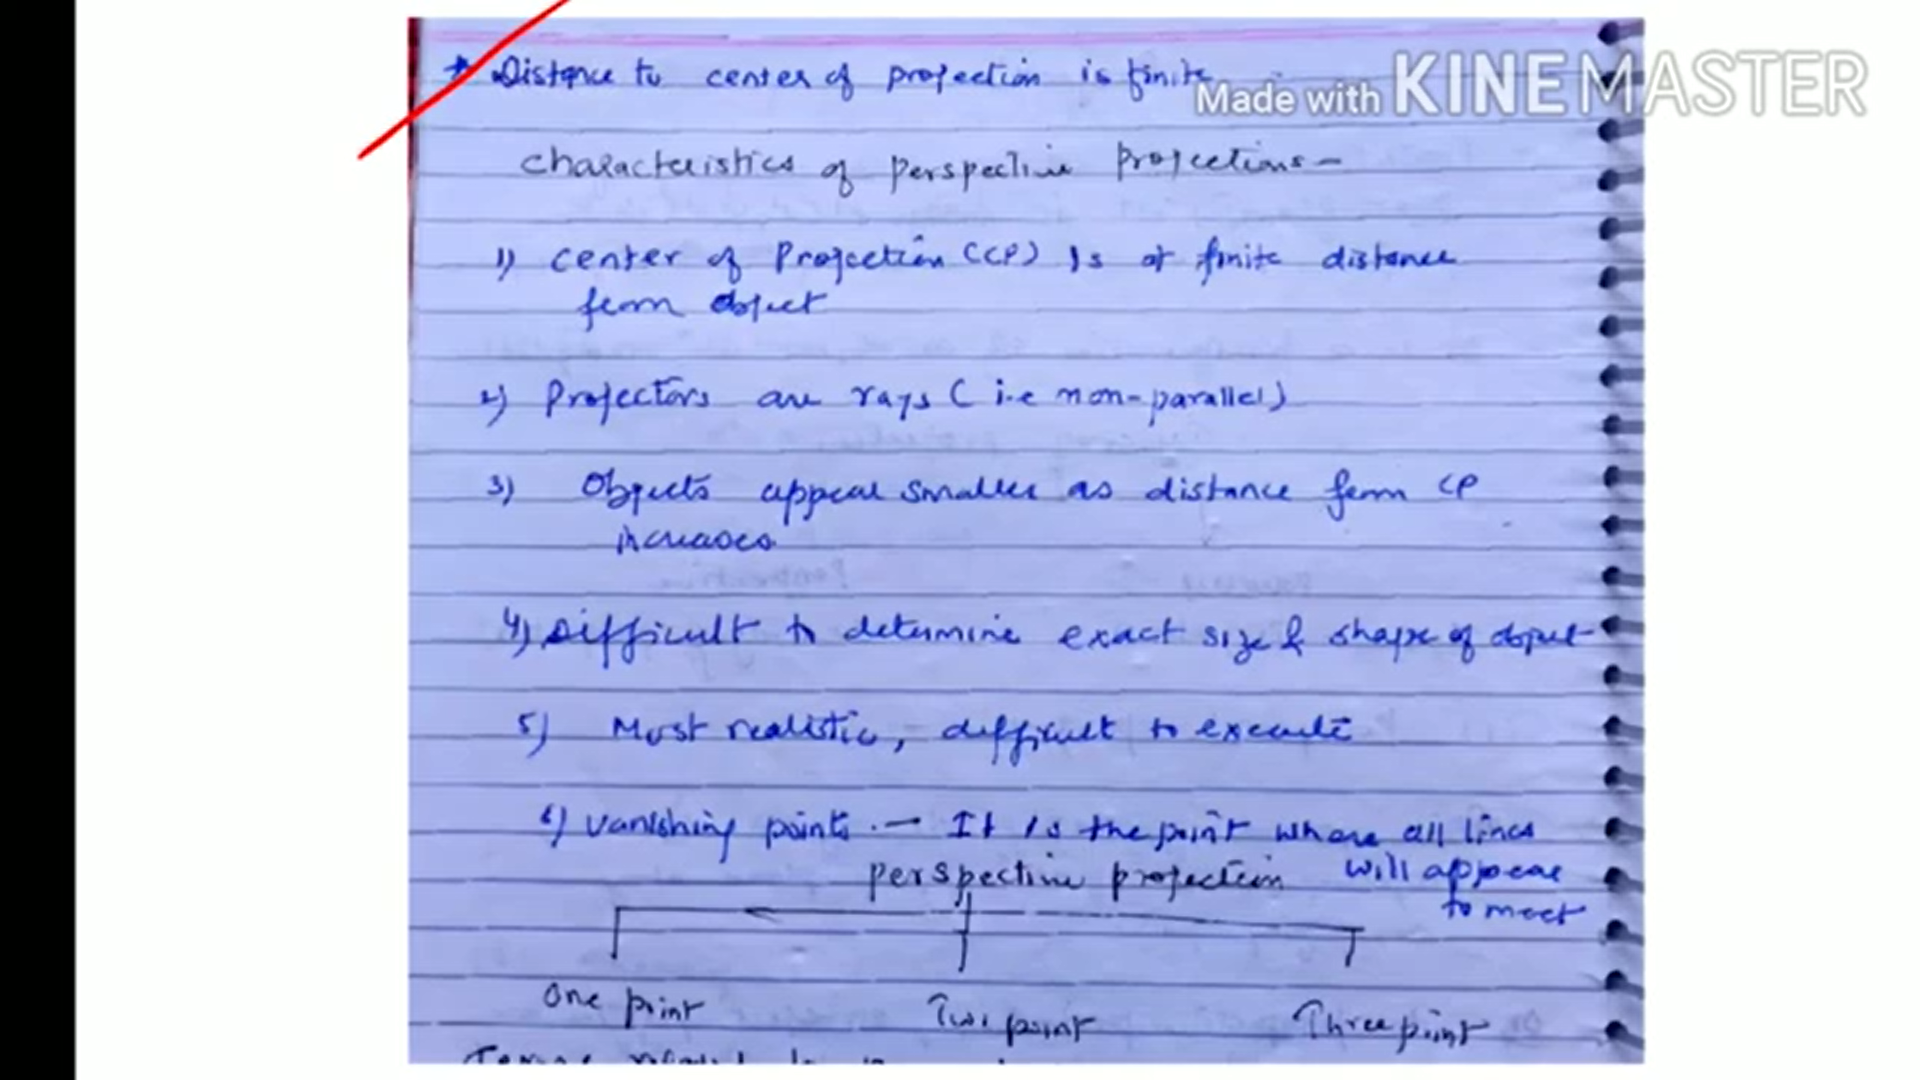 * Distance to center of projection is finite
Made with KINEMASTER
characteristics of perspective Projections-
1) center of Projection (CP) Is at finite distance
from object
2) Projectors are rays (i.e non-parallel)
3) Objects appear smaller as distance from CP
increases
4) Difficult to determine exact size & shape of object
5) Most realistic, difficult to execute
6) vanishing points - It is the point where all lines
will appear
to meet
perspective projection
One point Two point Three point